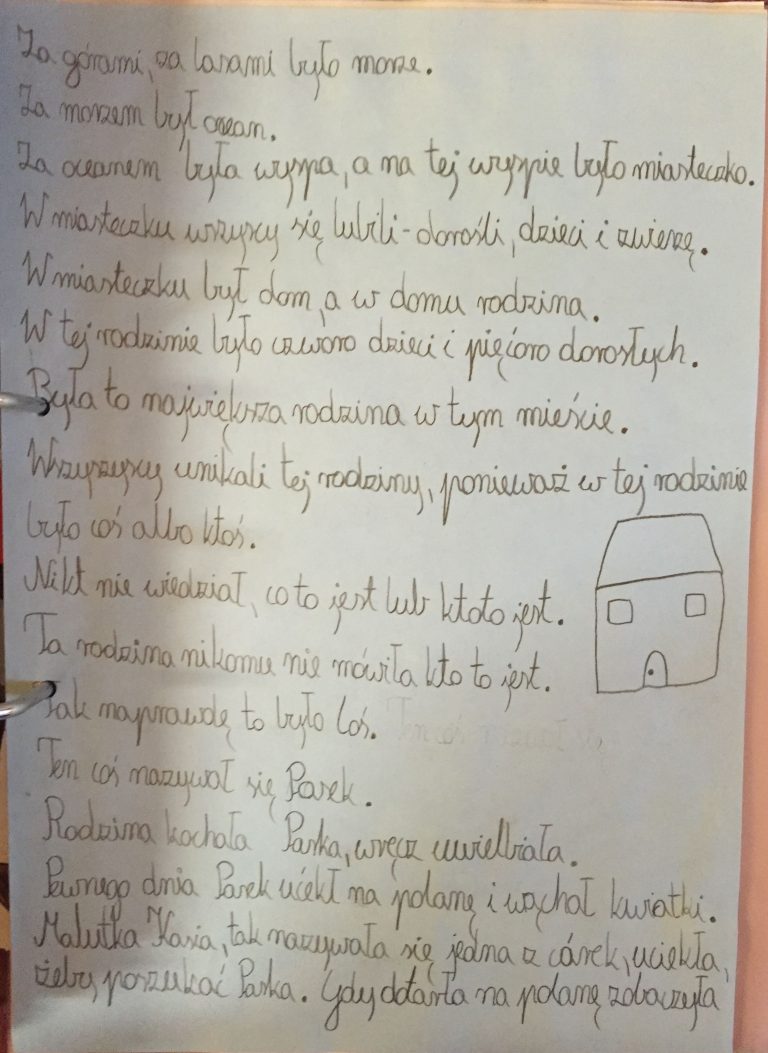 Za górami, za lasami było morze.
Za morzem był ocean.
Za oceanem była wyspa, a na tej wyspie było miasteczko.
W miasteczku wszyscy się lubili - dorośli, dzieci i zwierzę.
W miasteczku był dom, a w domu rodzina.
W tej rodzinie było czworo dzieci i pięcioro dorosłych.
Była to największa rodzina w tym mieście.
Wszyszyscy unikali tej rodziny, ponieważ w tej rodzinie
było coś albo ktoś.
Nikt nie wiedział, co to jest lub kto to jest.
Ta rodzina nikomu nie mówiła kto to jest.
Tak naprawdę to było Coś.
Ten coś nazywał się Parek.
Rodzina kochała Parka, wręcz uwielbiała.
Pewnego dnia Parek ućekł na polanę i wąchał kwiatki.
Malutka Kasia, tak nazywała się jedna z córek, uciekła,
żeby poszukać Parka. Gdy dotarła na polanę zobaczyła